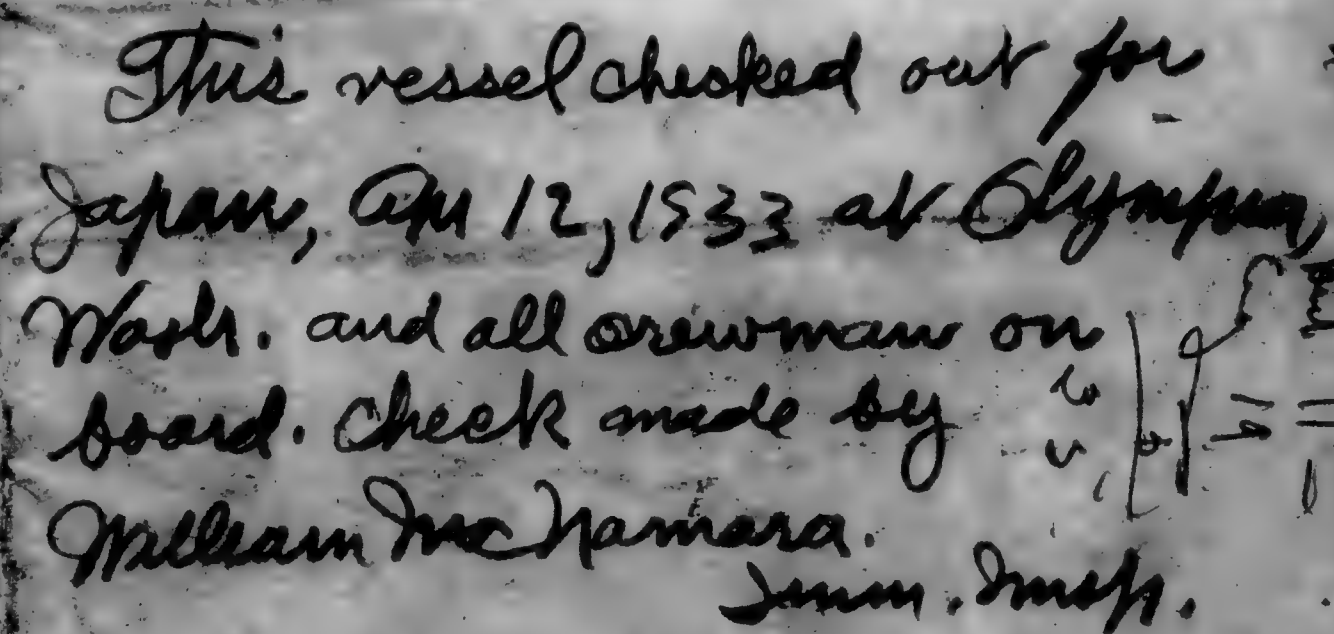 This vessel checked out for
Japan, Apr 12, 1933 at Olympia,
Wash. and all crewman on
board. Check made by
William McNamara.
Imm. Insp.